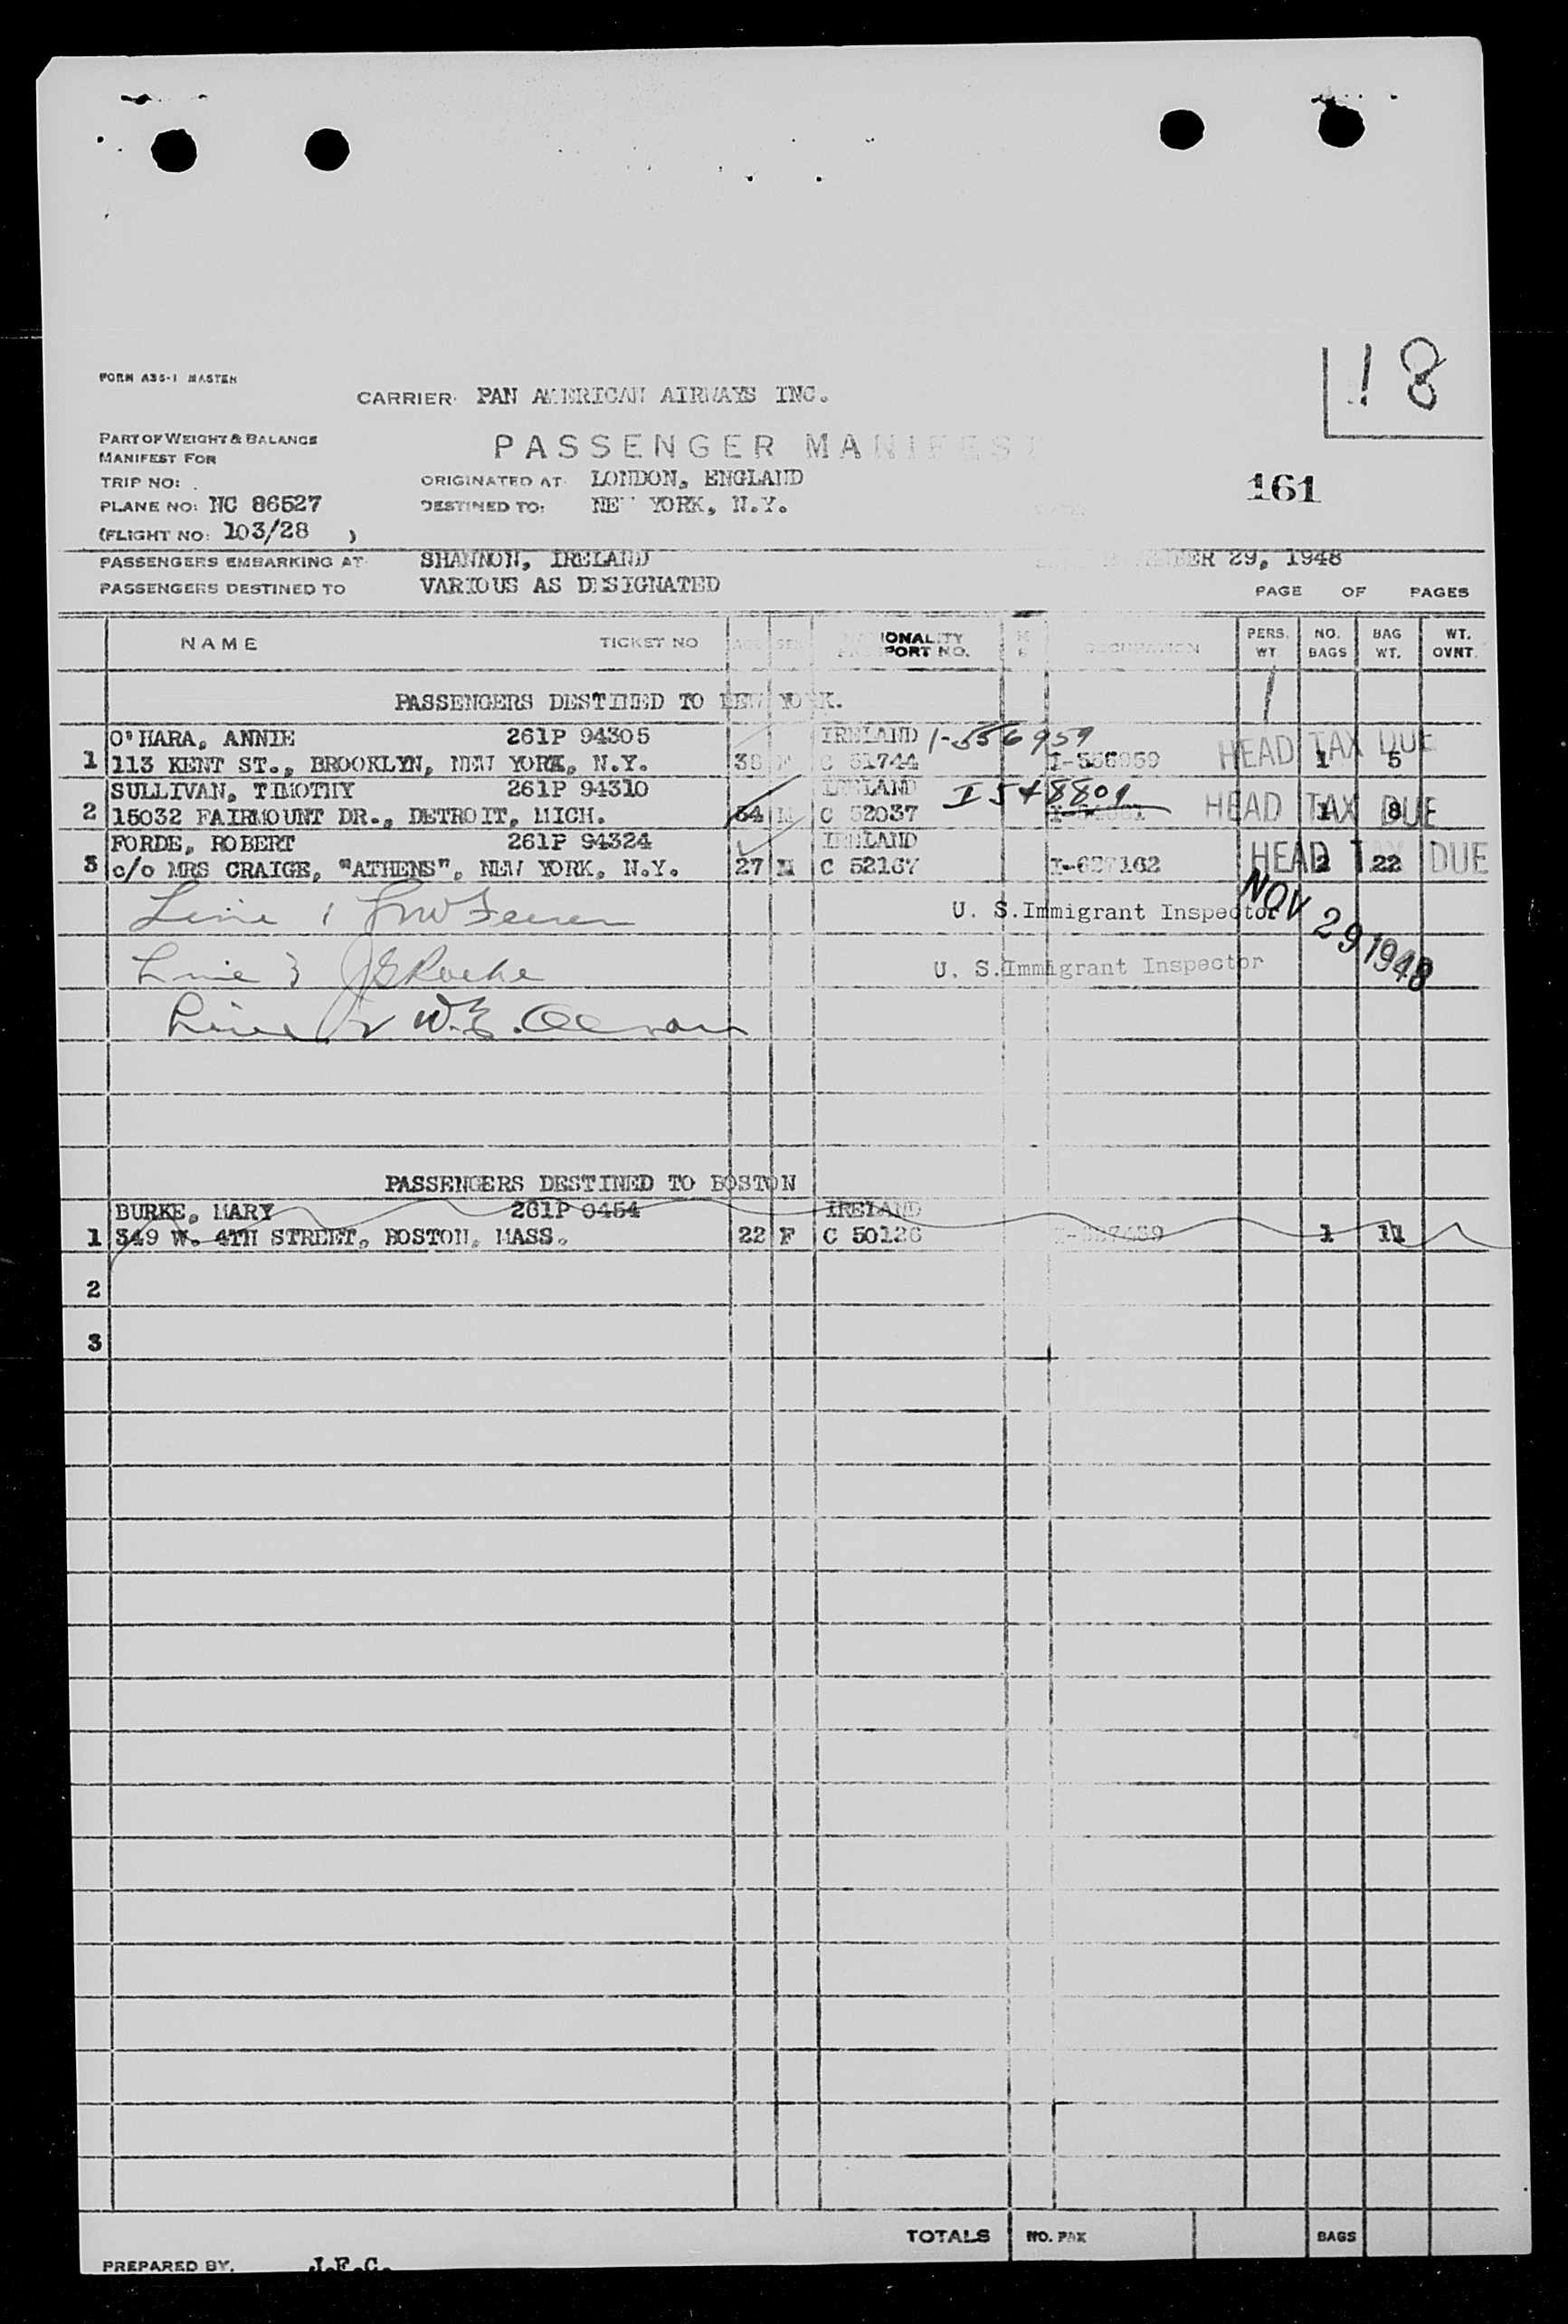 18
FORM A35-1 MASTER
CARRIER: PAN AMERICAN AIRWAYS INC.
PART OF WEIGHT & BALANCE
MANIFEST FOR
PASSENGER MANIFEST
TRIP NO:
ORIGINATED AT: LONDON, ENGLAND
161
PLANE NO: NC 86527
DESTINED TO: NEW YORK, N.Y.
(FLIGHT NO: 103/28 )
PASSENGERS EMBARKING AT SHANNON, IRELAND
29, 1948
PASSENGERS DESTINED TO VARIOUS AS DESIGNATED
PAGE OF PAGES
NAME TICKET NO AGE SEX NATIONALITY PASSPORT NO. OCCUPATION PERS. WT NO. BAGS BAG WT. WT. OVNT.
PASSENGERS DESTINED TO NEW YORK.
O'HARA, ANNIE 261P 94305 IRELAND I-556959
1 113 KENT ST., BROOKLYN, NEW YORK, N.Y. 38 F C 51744 I-556959 HEAD TAX DUE 1 5
SULLIVAN, TIMOTHY 261P 94310 IRELAND I 548809
2 15032 FAIRMOUNT DR., DETROIT, MICH. 54 M C 52037 HEAD TAX DUE 1 8
FORDE, ROBERT 261P 94324 IRELAND
3 c/o MRS CRAIGE, "ATHENS", NEW YORK, N.Y. 27 M C 52167 I-627162 HEAD TAX DUE 2 22
Line 1
U. S. Immigrant Inspector
NOV 29 1948
Line 3 J G Roche
U. S. Immigrant Inspector
Line 2 W.E.
PASSENGERS DESTINED TO BOSTON
BURKE, MARY 261P 0454 IRELAND
1 349 W. 4TH STREET, BOSTON, MASS. 22 F C 50126 1 11
2
3
TOTALS NO. PAX BAGS
PREPARED BY. J.F.C.